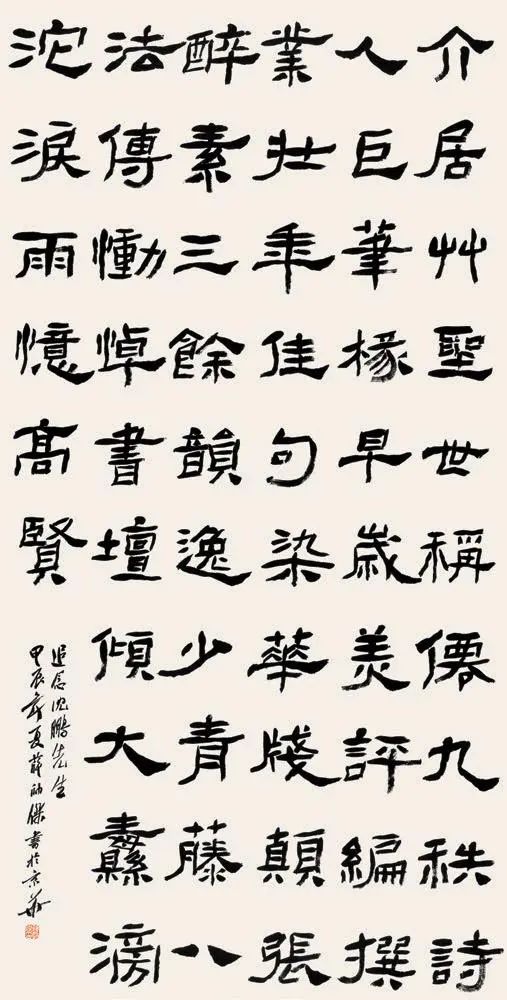 介居艸聖世稱僊九秩詩
人巨筆椽早歲美評編撰
業壯年佳句染華牋顛張
醉素三餘韻逸少青藤八
法傳慟悼書壇傾大纛滂
沱淚雨憶高賢
追念沈鵬先生
甲辰年夏薛帥傑書於京華